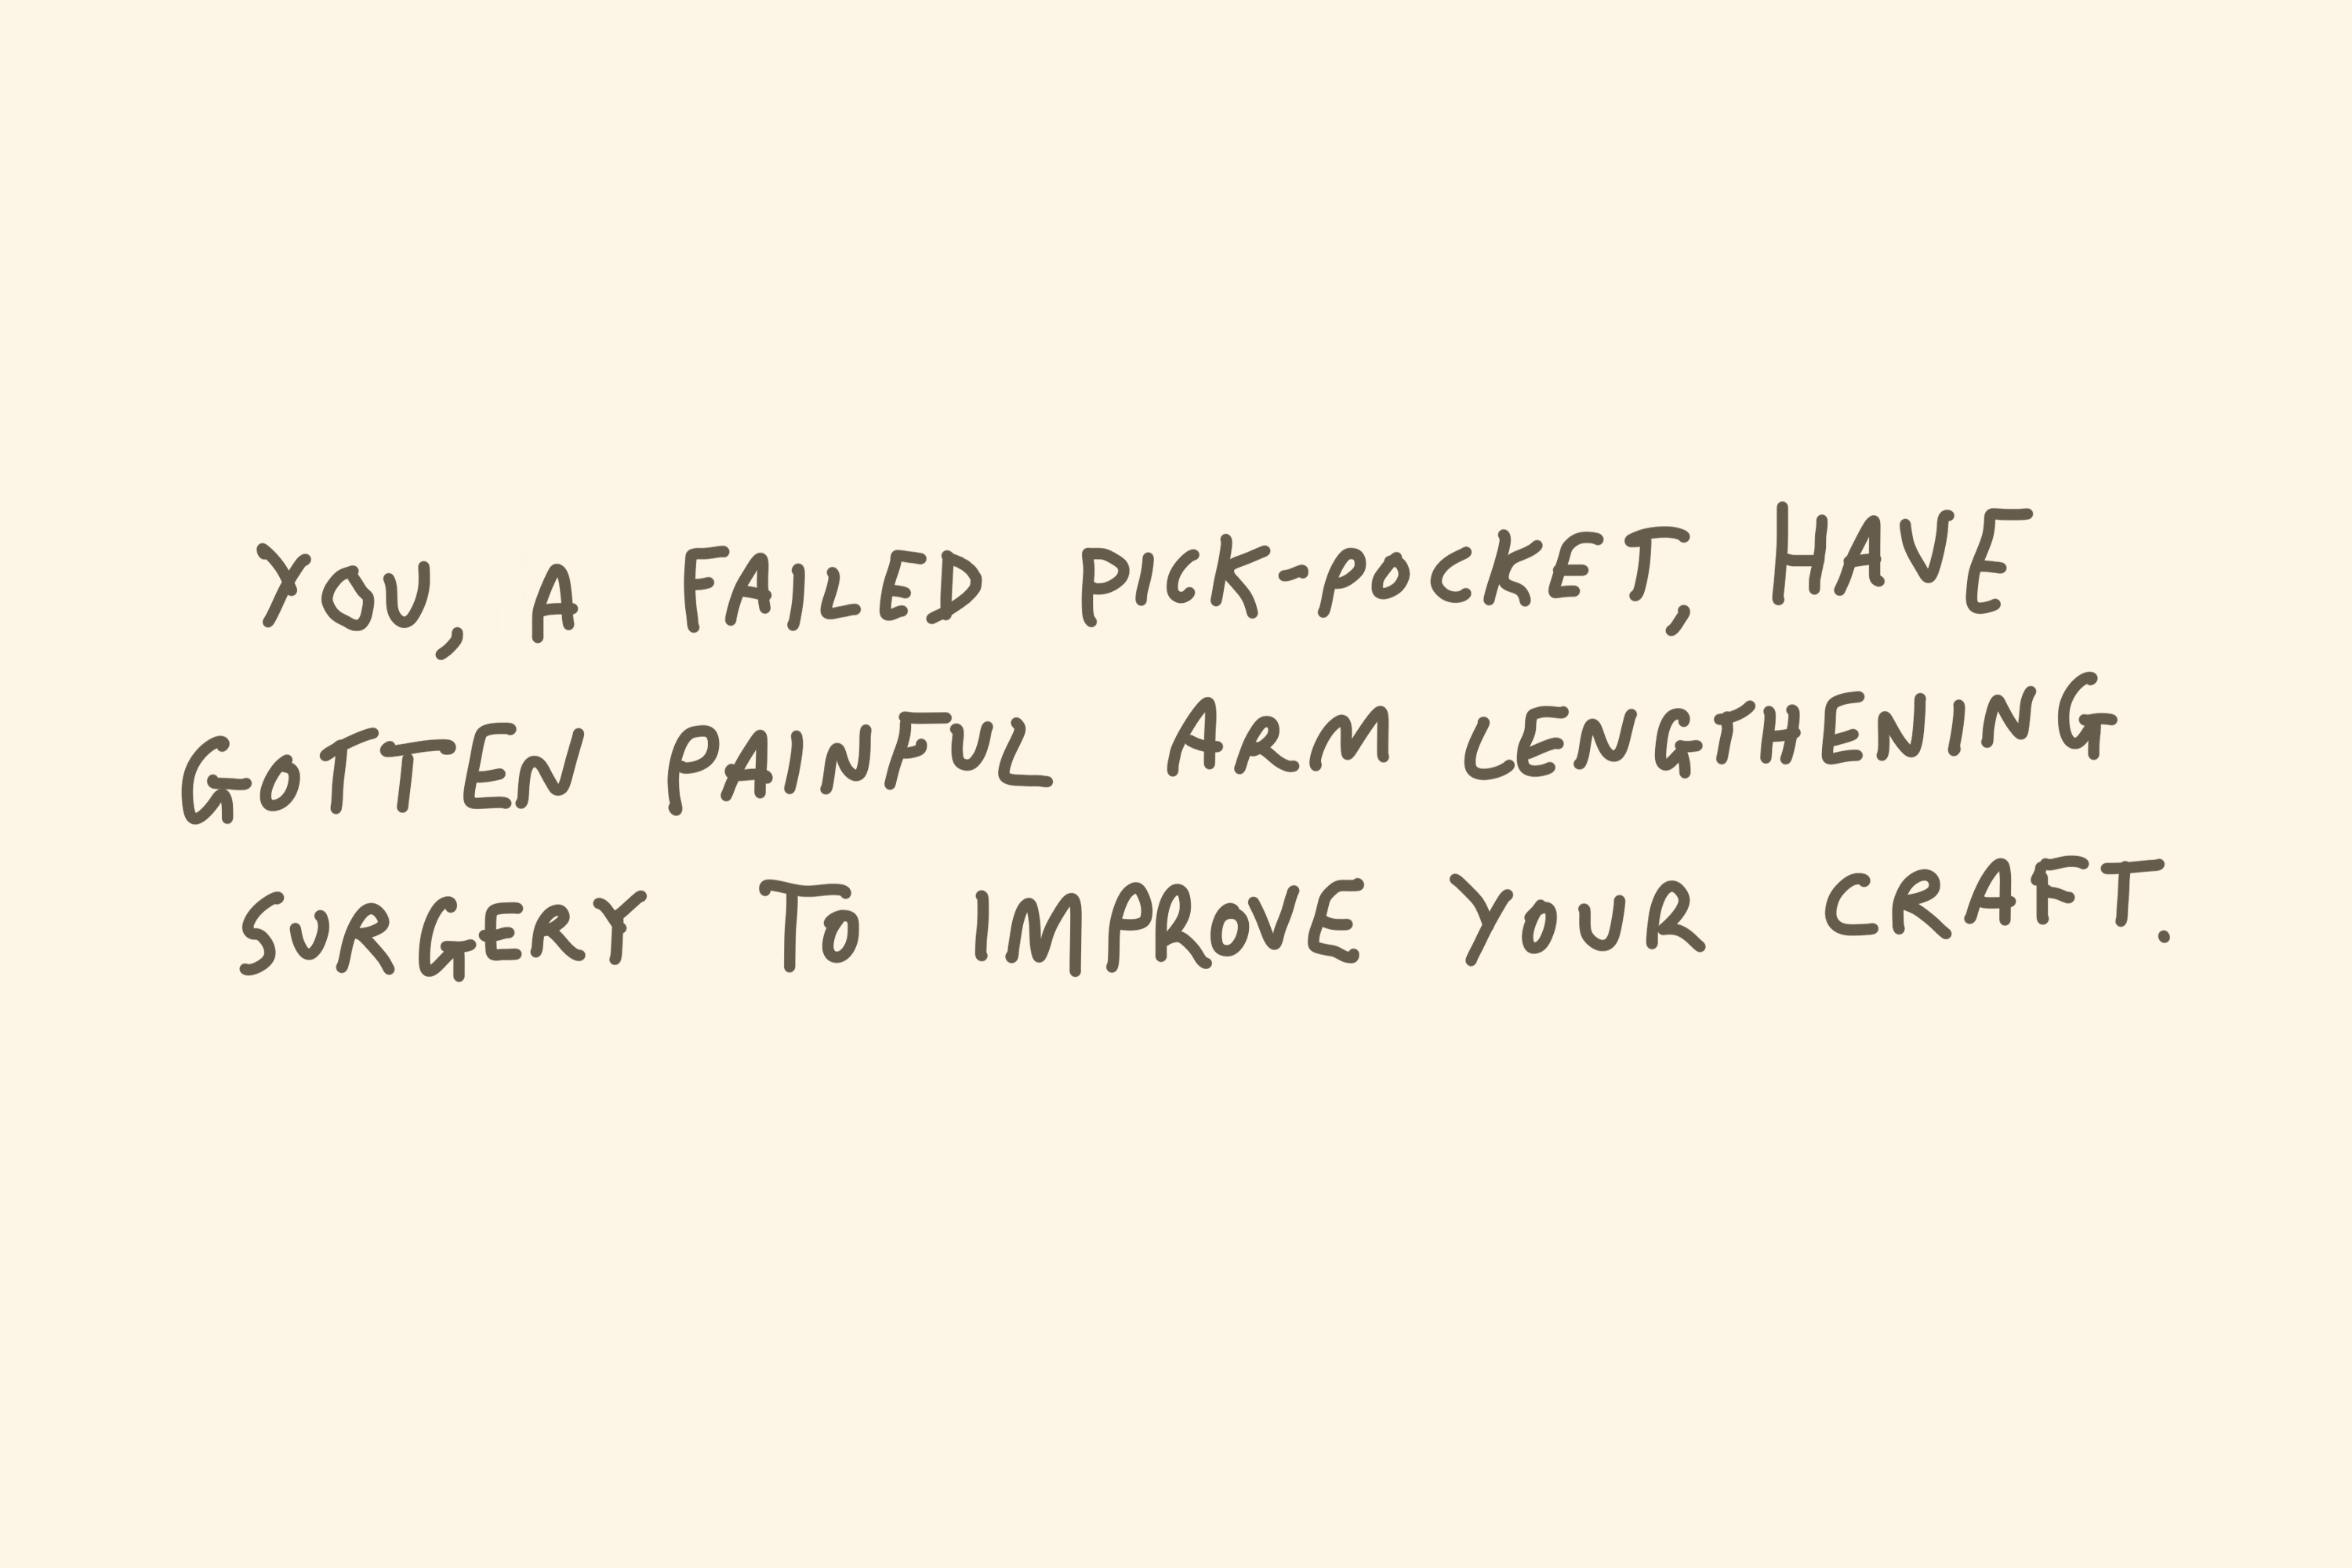 YOU, A FAILED PICK-POCKET, HAVE
GOTTEN PAINFUL ARM LENGTHENING
SURGERY TO IMPROVE YOUR CRAFT.